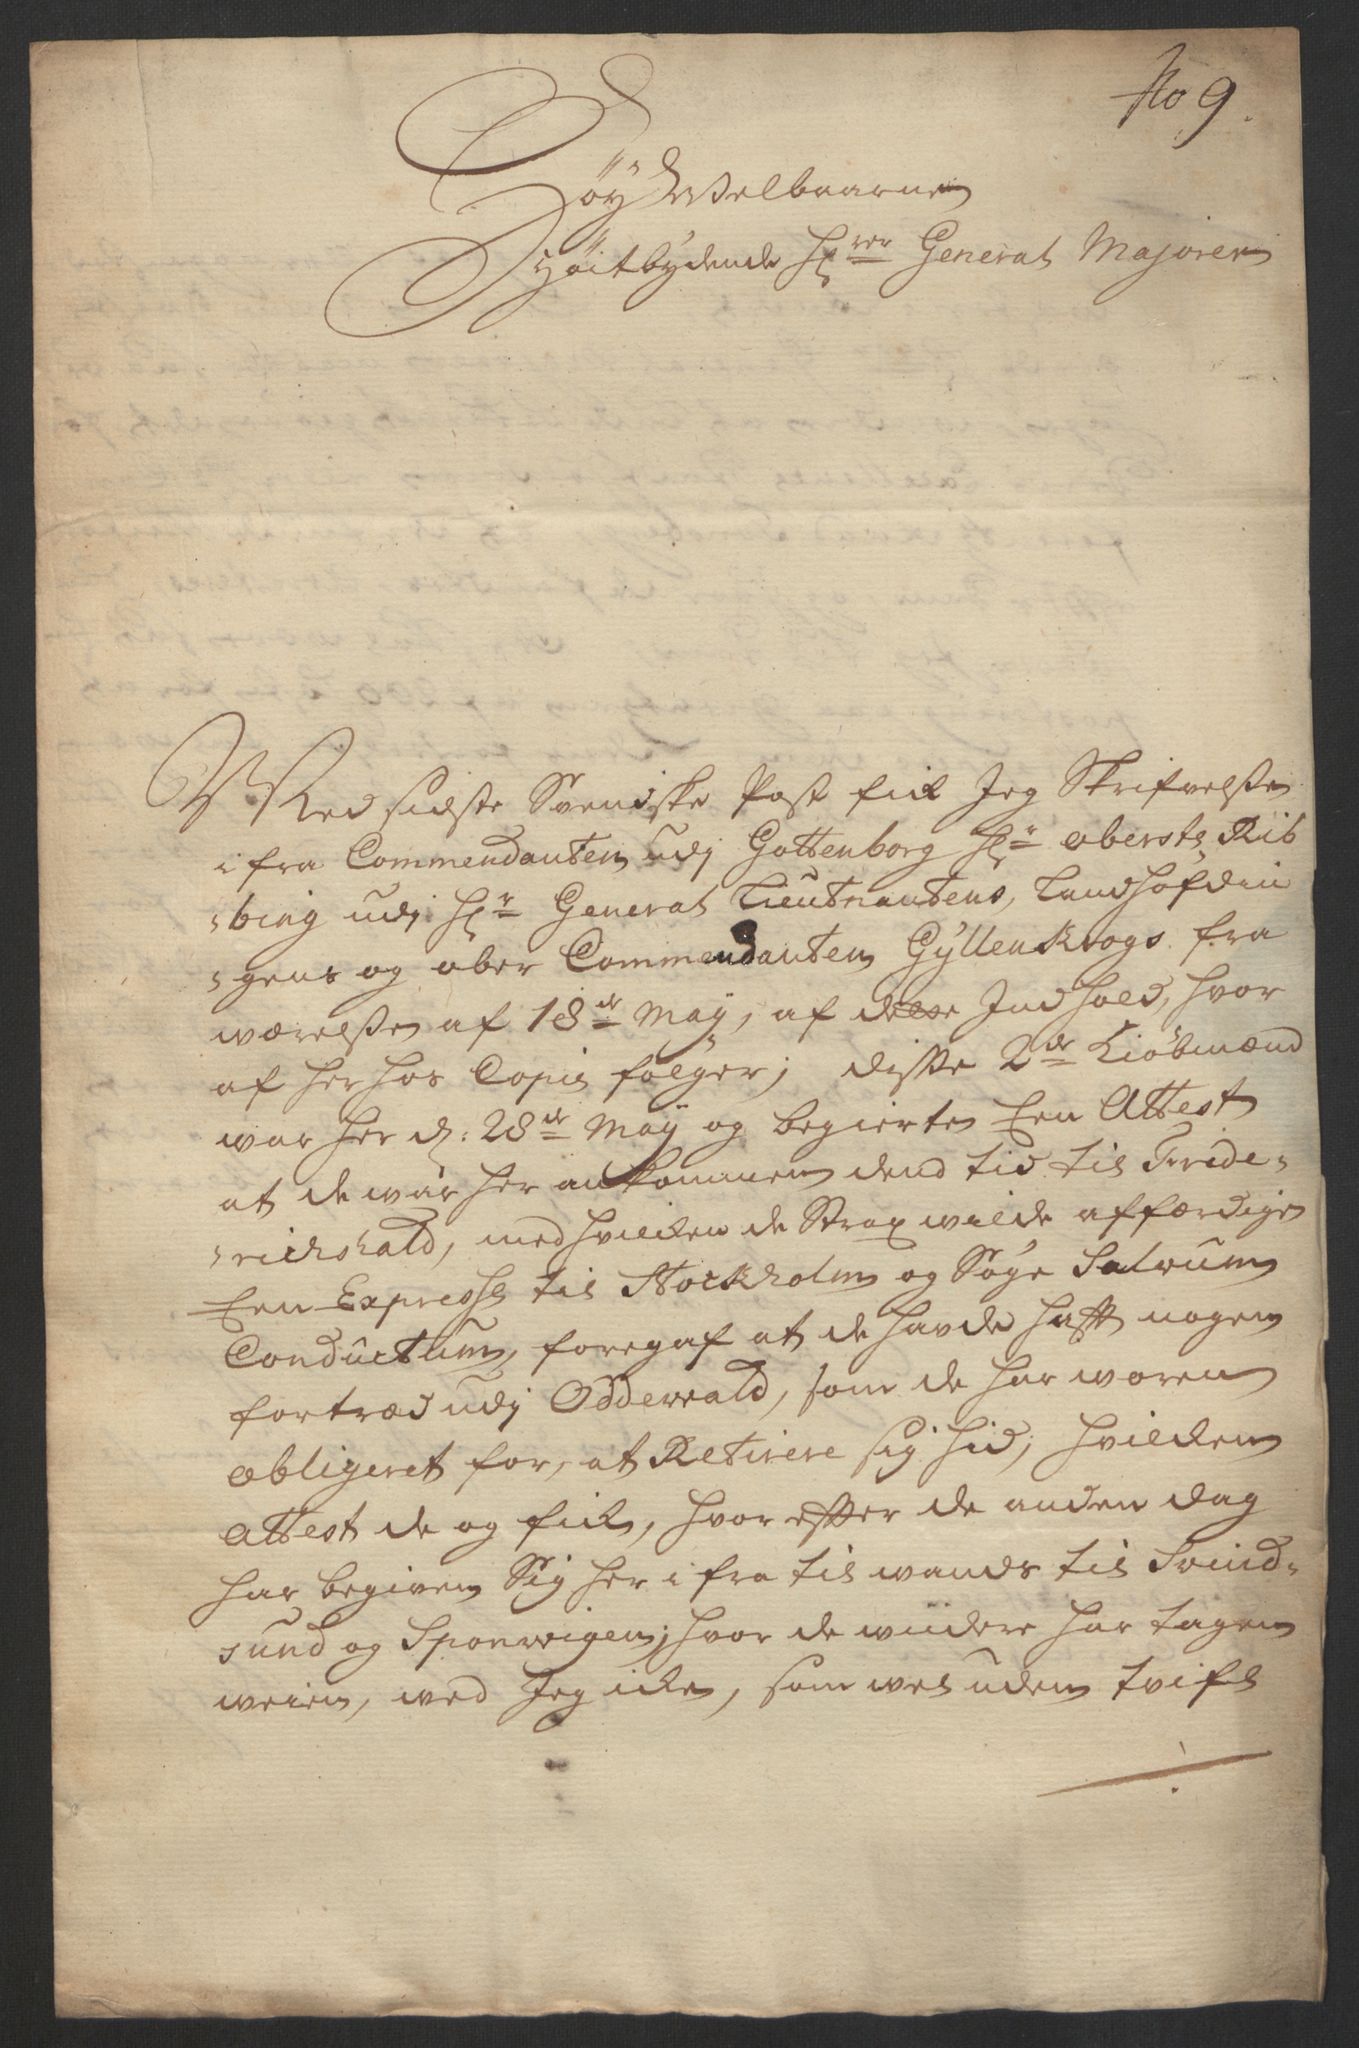 No 9.
Høy Welbaarne
Høitbydende Hr General Majoren
Med sidste Svendske Post fick Jeg Skrifvelse
i fra Commendanten udj Gottenborg Hr oberste Rib
-bing udj Hr General Lieutnantens, Landhöfdin
-gens og ober Commendanten Gyllenkrogs fra
wærelse af 18de Maÿ, af dette Indhold, hvor
af her hos Copie følger; disse 2de Kiöbmænd
war her d: 28de Maÿ og begierte Een Attest
at de war her ankommen dend tid til Fride-
-richshald, med hvilken de Strax wilde affærdige
Een Expresse til Stockholm og Søge Salvum
Conductum, foregaf at de havde haft nogen
fortræd udj Oddewald, som de har woren
obligeret for, at Retirere sig hid; hvilken
Attest de og fick, hvor effter de anden dag
har begiven Sig her i fra til wands til Svind-
sund og Sponwigen; hvor de wiidere har tagen
weien, weed Jeg icke, som wel uden tvifl